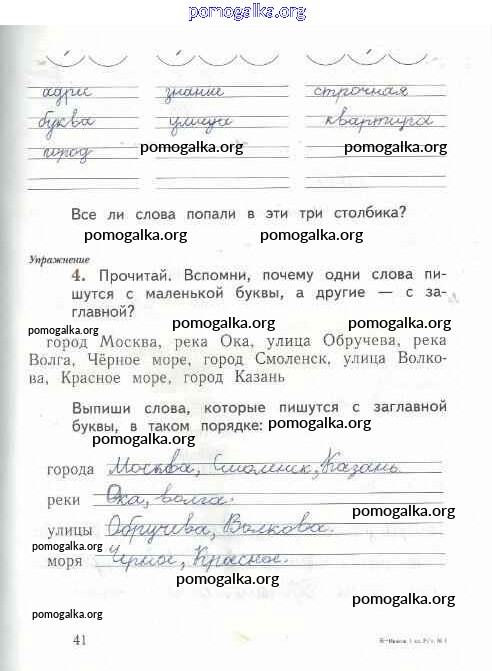 pomogalka.org
адрес знание строчная
буква улица квартира
город pomogalka.org pomogalka.org
Все ли слова попали в эти три столбика?
pomogalka.org pomogalka.org
Упражнение
4. Прочитай. Вспомни, почему одни слова пи-
шутся с маленькой буквы, а другие — с за-
главной?
pomogalka.org pomogalka.org pomogalka.org
город Москва, река Ока, улица Обручева, река
Волга, Чёрное море, город Смоленск, улица Волко-
ва, Красное море, город Казань
Выпиши слова, которые пишутся с заглавной
буквы, в таком порядке: pomogalka.org
pomogalka.org
города Москва, Смоленск, Казань.
реки Ока, волга.
pomogalka.org
улицы Обручева, Волкова.
pomogalka.org
моря Чёрное, Красное.
pomogalka.org
pomogalka.org pomogalka.org
41